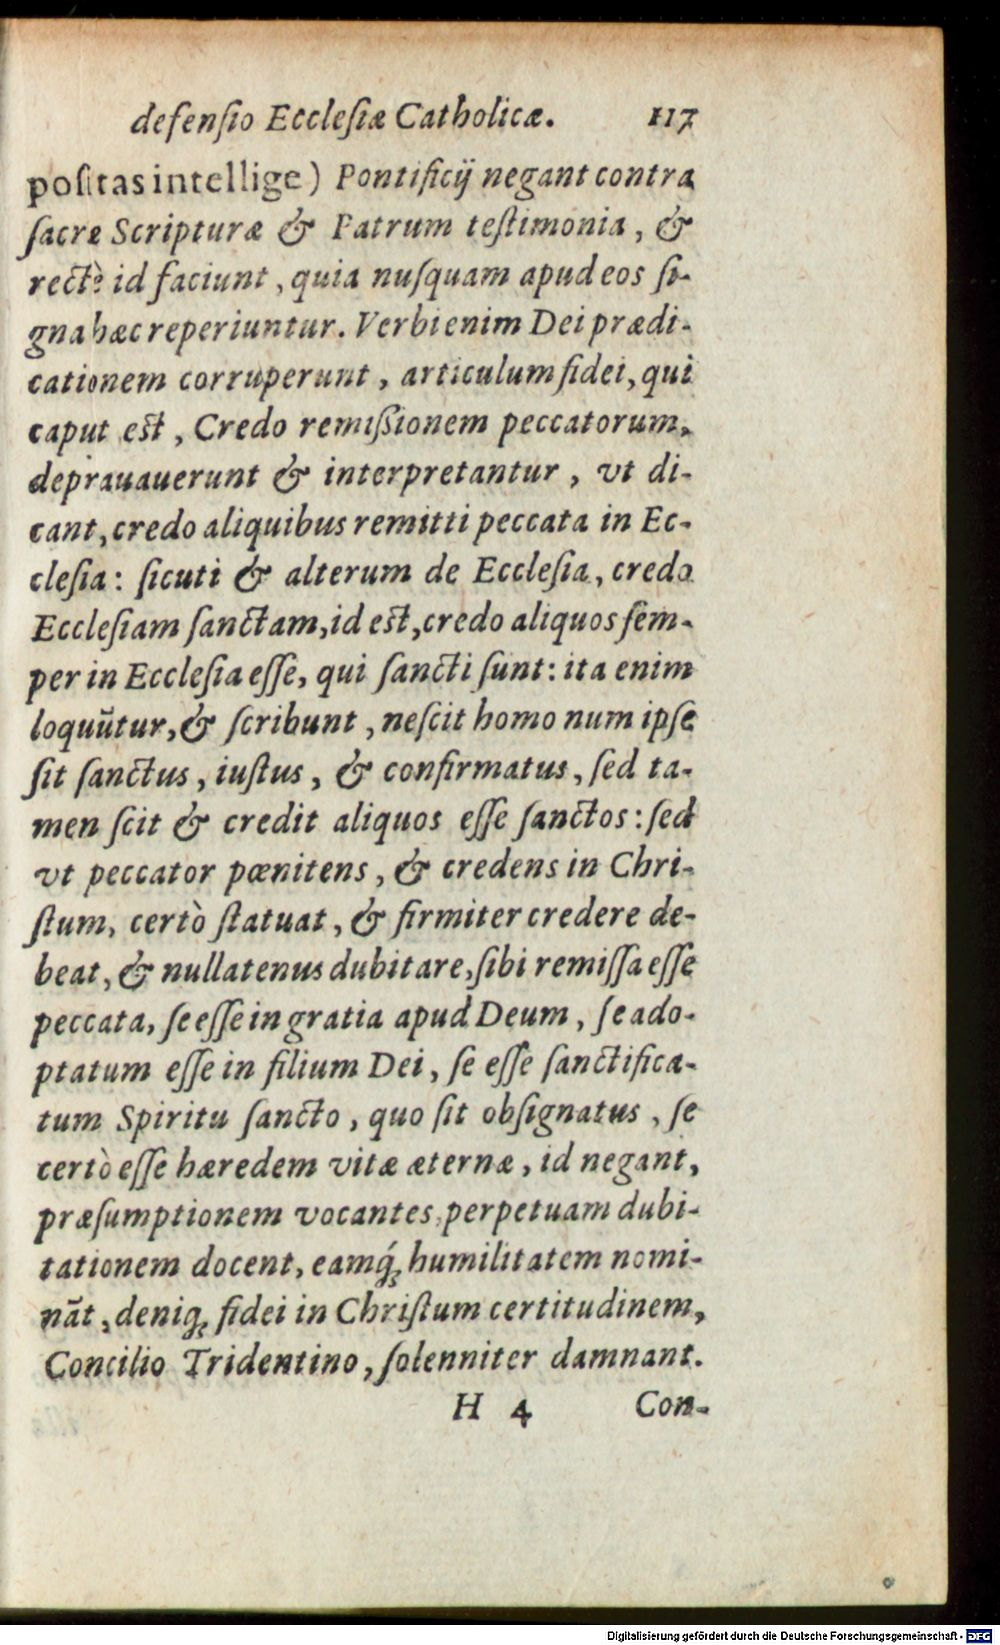 defenſio Eccleſiæ Catholicæ. 117
poſitas intellige) Pontificij negant contra
ſacræ Scripturæ & Patrum teſtimonia, &
rectè id faciunt, quia nuſquam apud eos ſi-
gna hæc reperiuntur. Verbi enim Dei prædi-
cationem corruperunt, articulum fidei, qui
caput eſt, Credo remiſsionem peccatorum,
deprauauerunt & interpretantur, vt di-
cant, credo aliquibus remitti peccata in Ec-
cleſia: ſicuti & alterum de Eccleſia, credo
Eccleſiam ſanctam, id eſt, credo aliquos ſem-
per in Eccleſia eſſe, qui ſancti ſunt: ita enim
loquūtur, & ſcribunt, neſcit homo num ipſe
ſit ſanctus, iuſtus, & confirmatus, ſed ta-
men ſcit & credit aliquos eſſe ſanctos: ſed
vt peccator pœnitens, & credens in Chri-
ſtum, certò ſtatuat, & firmiter credere de-
beat, & nullatenus dubitare, ſibi remiſſa eſſe
peccata, ſe eſſe in gratia apud Deum, ſe ado-
ptatum eſſe in filium Dei, ſe eſſe ſanctifica-
tum Spiritu ſancto, quo ſit obſignatus, ſe
certò eſſe hæredem vitæ æternæ, id negant,
præſumptionem vocantes, perpetuam dubi-
tationem docent, eamq́ꝫ humilitatem nomi-
nāt, deniqꝫ fidei in Chriſtum certitudinem,
Concilio Tridentino, ſolenniter damnant.
H 4 Con-
Digitalisierung gefördert durch die Deutsche Forschungsgemeinschaft - DFG